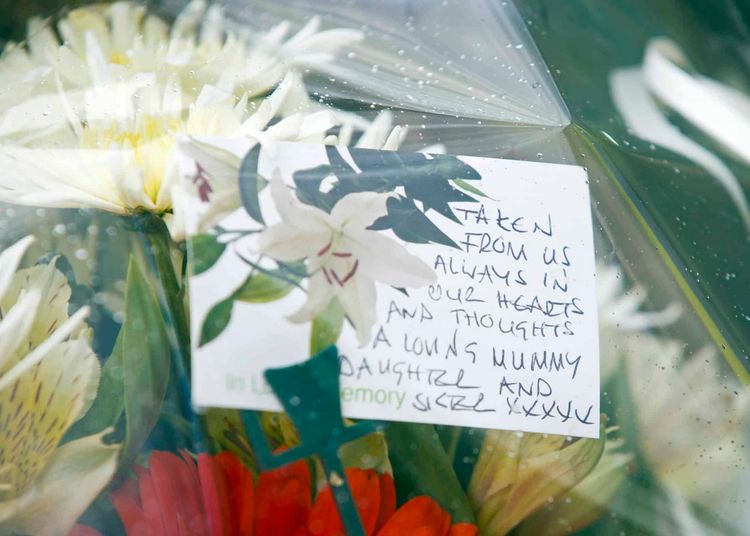 TAKEN
FROM US
ALWAYS IN
OUR HEARTS
AND THOUGHTS
A LOVING MUMMY
DAUGHTER AND
SISTER XXXXX
In emory